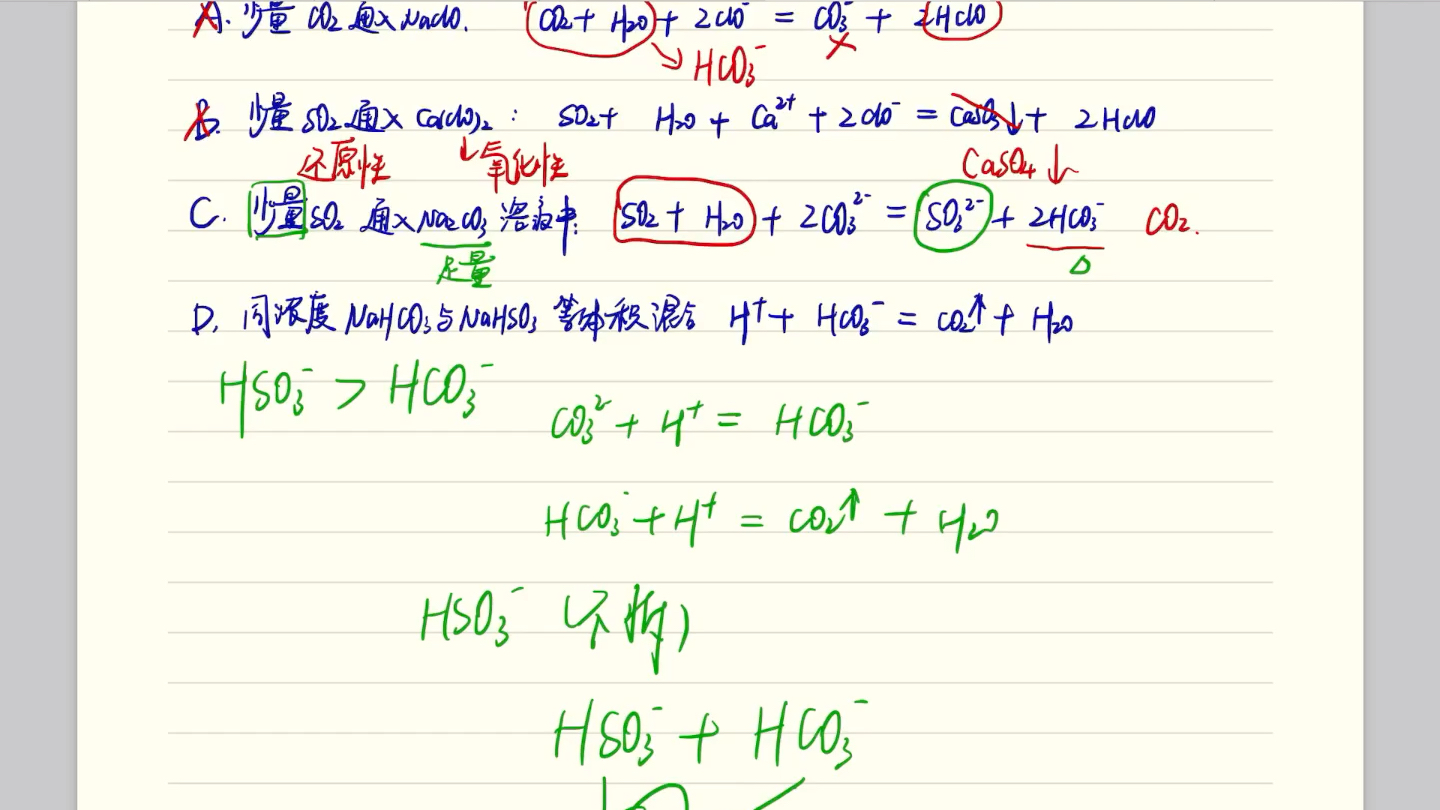 A. 少量 CO₂ 通入 NaClO. CO₂ + H₂O + 2ClO⁻ = CO₃⁻ + 2HClO
HCO₃⁻
B. 少量 SO₂ 通入 Ca(ClO)₂ : SO₂ + H₂O + Ca²⁺ + 2ClO⁻ = CaSO₃↓ + 2HClO
还原性 ↓氧化性 CaSO₄↓
C. 少量 SO₂ 通入 Na₂CO₃ 溶液中: SO₂ + H₂O + 2CO₃²⁻ = SO₃²⁻ + 2HCO₃⁻ CO₂.
足量 △
D. 同浓度 NaHCO₃与NaHSO₃ 等体积混合 H⁺ + HCO₃⁻ = CO₂↑ + H₂O
HSO₃⁻ > HCO₃⁻
CO₃²⁻ + H⁺ = HCO₃⁻
HCO₃⁻ + H⁺ = CO₂↑ + H₂O
HSO₃⁻ (不拆)
HSO₃⁻ + HCO₃⁻